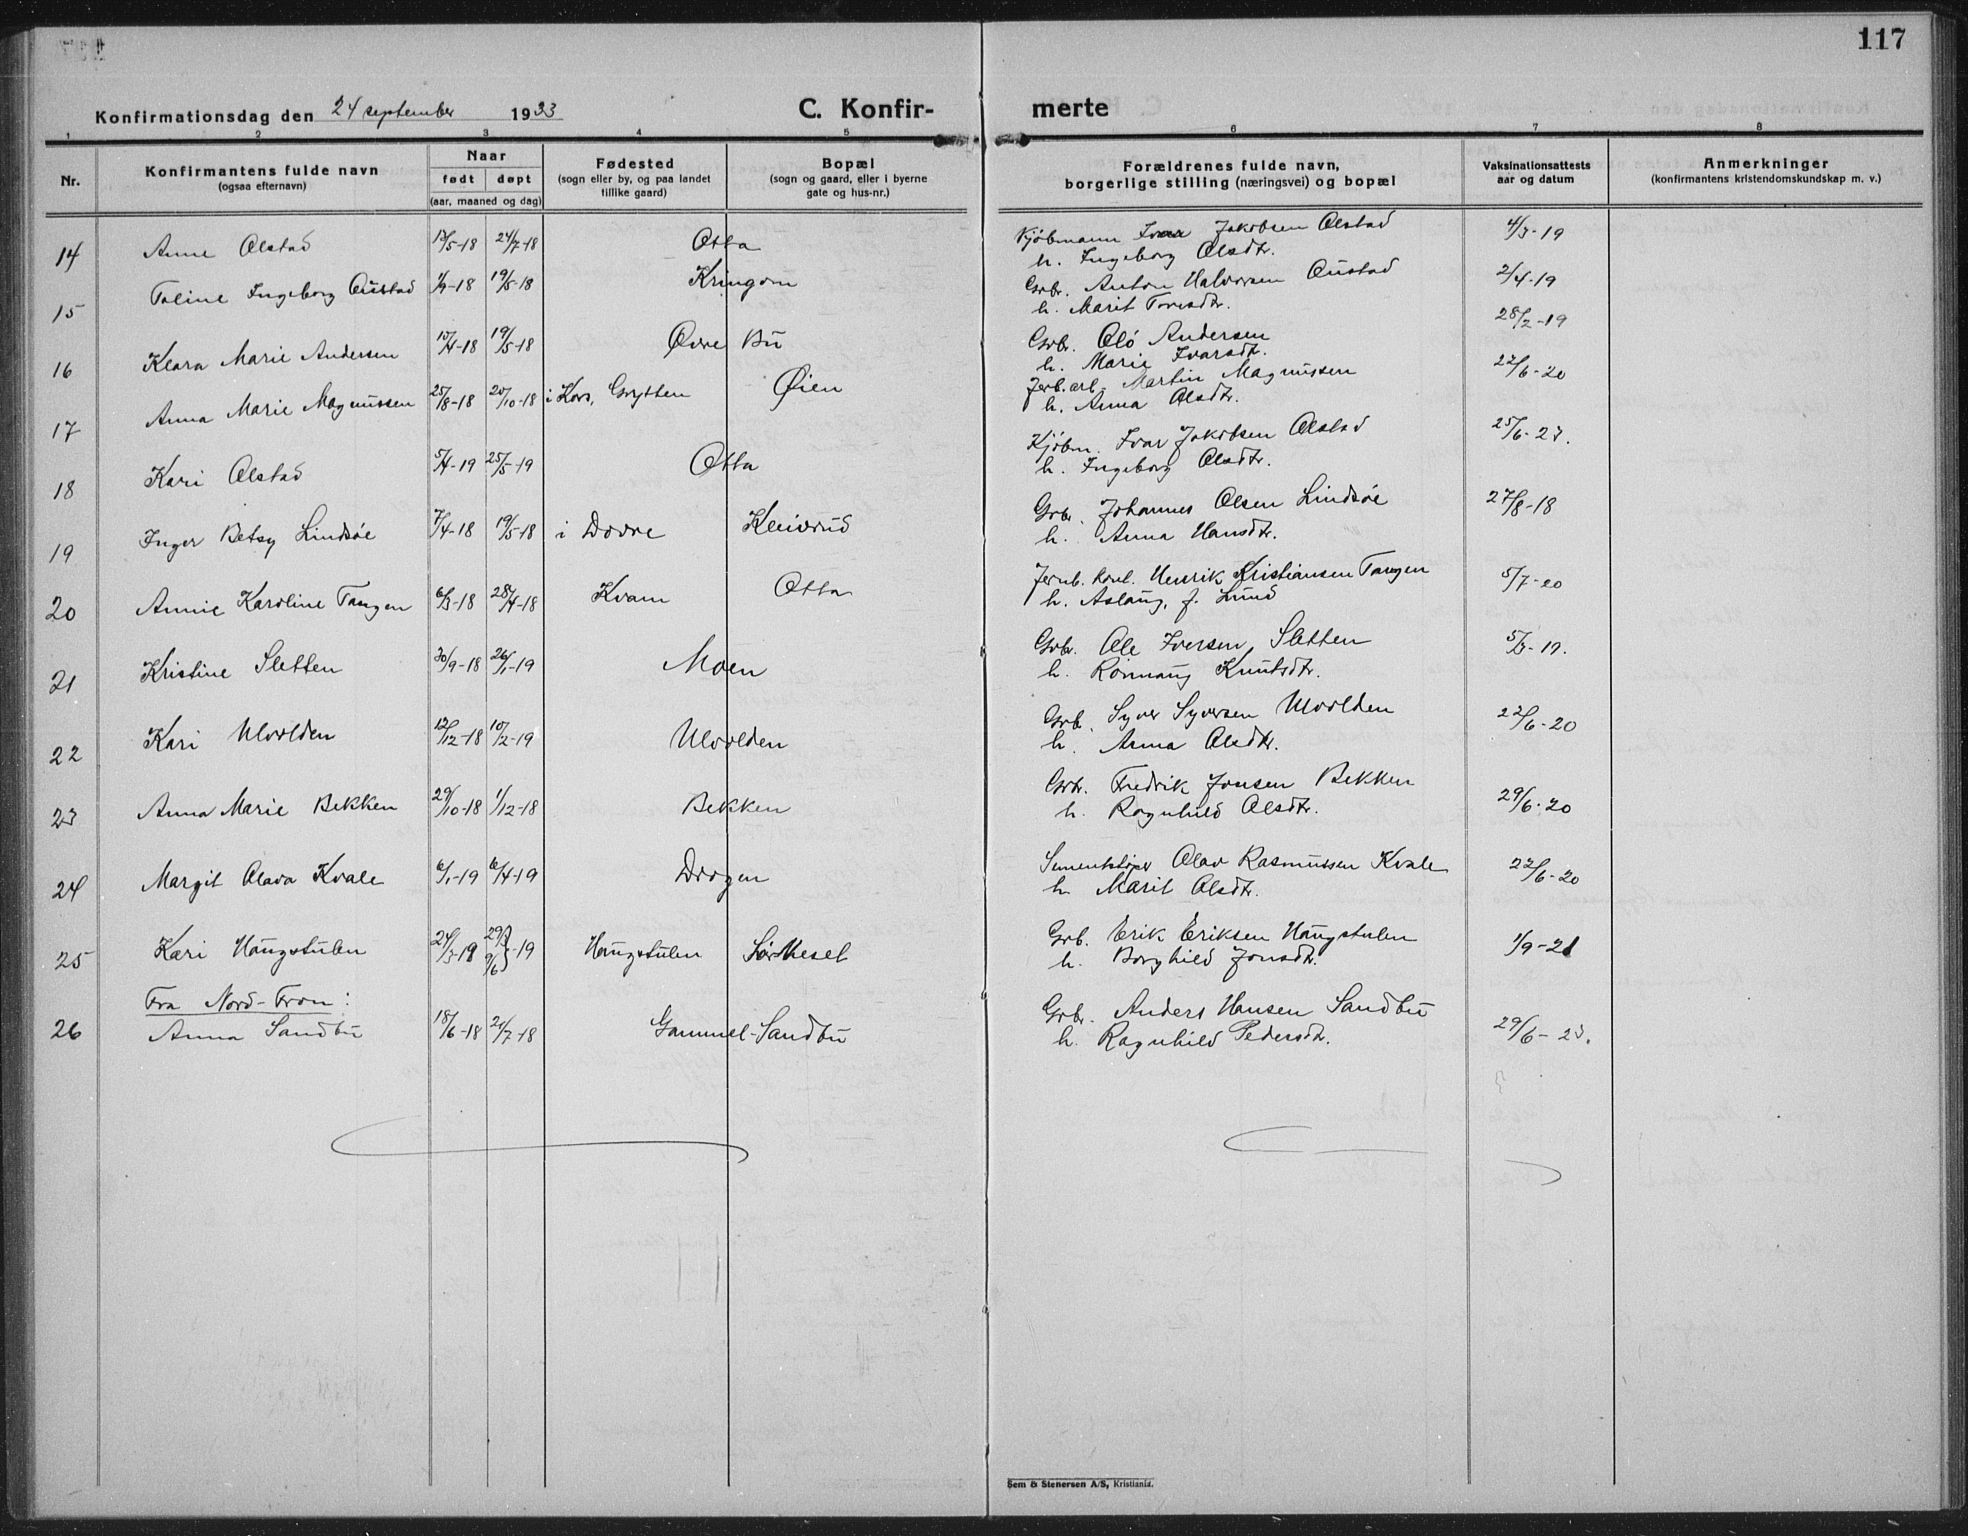 117
Konfirmationsdag den 24 september 1933
C. Konfir-
merte
1 2 3 4 5 6 7 8
Nr.
Konfirmantens fulde navn
(ogsaa efternavn)
Naar
født døpt
(aar, maaned og dag)
Fødested
(sogn eller by, og paa landet
tillike gaard)
Bopæl
(sogn og gaard, eller i byerne
gate og hus-nr.)
Forældrenes fulde navn,
borgerlige stilling (næringsvei) og bopæl
Vaksinationsattests
aar og datum
Anmerkninger
(konfirmantens kristendomskundskap m. v.)
14 Anne Olstad 13/5-18 24/7-18 Otta Kjøbmann Ivar Jakobsen Olstad 4/3-19
h. Ingeborg Olsdtr.
15 Toline Ingeborg Austad 19/5-18 Kringom Grbr. Anton Halvorsen Austad 2/4-19
h. Marit Toresdtr.
16 Klara Marie Andersen 15/4-18 19/5-18 Øvre Bu Grbr. Olö Andersen 28/2-19
h. Marie Ivarsdtr.
17 Anna Marie Magnussen 25/8-18 20/10-18 i Kors, Grytten Øien Jerb. arb. Martin Magnussen 22/6-20
h. Anna Olsdtr.
18 Kari Olstad 5/4-19 25/5-19 Otta Kjøbm. Ivar Jakobsen Olstad 25/6-23.
h. Ingeborg Olsdtr.
19 Inger Betsy Lindsøe 7/4-18 19/5-18 i Dovre Kleivrud Grbr. Johannes Olsen Lindsöe 27/8-18
h. Anna Hansdtr.
20 Annie Karoline Tangen 6/3-18 28/4-18 Kvam Otta Jernb. Henrik Kristiansen Tangen 5/7-20
h. Aslaug, f. Lund
21 Kristine Sletten 30/9-18 26/1-19 Moen Grbr. Ole Iversen Sletten 5/3-19.
h. Rönnaug Knutsdtr.
22 Kari Ulvolden 12/12-18 10/2-19 Ulvolden Grb. Syver Syversen Ulvolden 22/6-20
h. Anna Olsdtr.
23 Anna Marie Bekken 29/10-18 1/12-18 Bekken Grbr. Fredrik Jonsen Bekken 29/6-20
h. Ragnhild Olsdtr.
24 Margit Olava Kvale 6/1-19 6/4-19 Drogen Olav Rasmussen Kvale 22/6-20
h. Marit Olsdtr.
25 Kari Haugstulen 24/3-19 29/3 9/6}-19 Haugstulen Sør Hesel Grb. Erik Eriksen Haugstulen 1/9-21
h. Borghild Jonsdtr.
Fra Nord-Fron:
26 Anna Sandbu 18/6-18 21/7-18 Gammel-Sandbu Grbr. Anders Hansen Sandbu 29/6-23.
h. Ragnhild Pedersdtr.
Sem & Stenersen A/S, Kristiania.